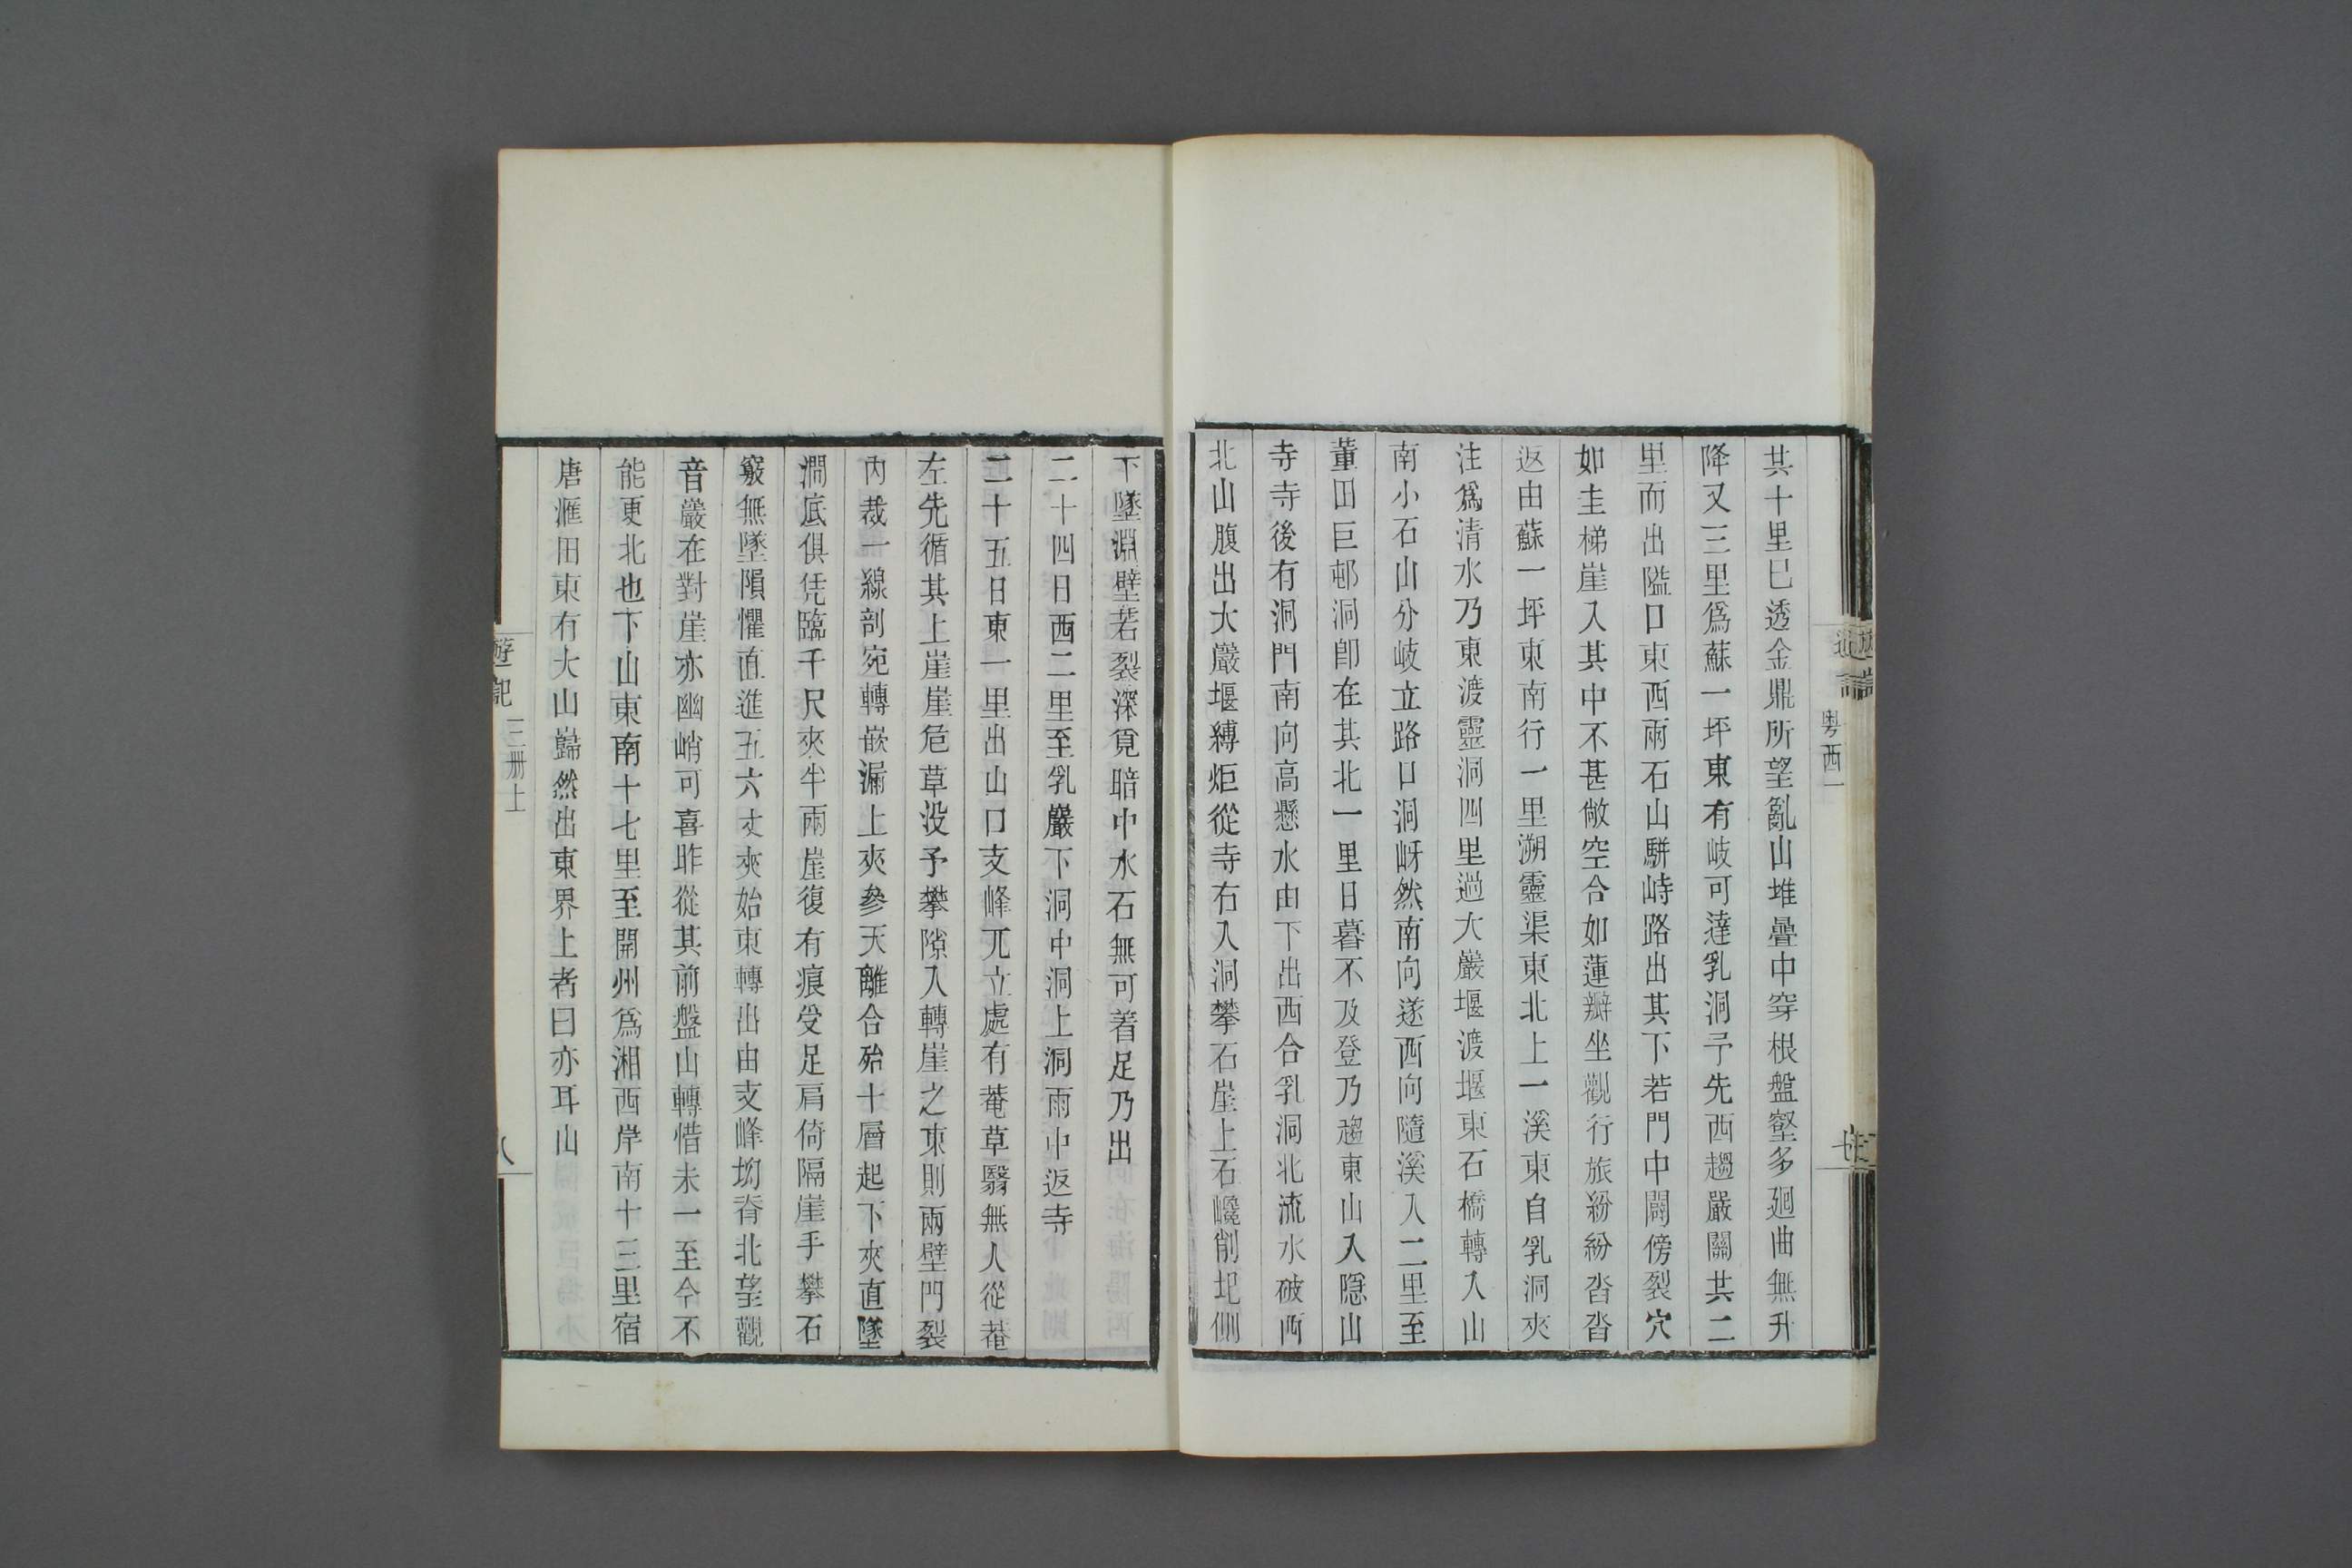 粤西一
其十里巳透金鼎所望亂山堆疊中穿根盤壑多廻曲無升
降又三里爲蘇一坪東有岐可達乳洞予先西趨嚴關共二
里而出隘口東西兩石山駢峙路出其下若門中闢傍裂穴
如圭梯崖入其中不甚敞空合如蓮瓣坐觀行旅紛紛沓沓
返由蘇一坪東南行一里溯靈渠東北上一溪東自乳洞夾
注爲清水乃東渡靈洞四里過大巖堰渡堰東石橋轉入山
南小石山分岐立路口洞岈然南向遂西向隨溪入二里至
董田巨邨洞卽在其北一里日暮不及登乃趨東山入隱山
寺寺後有洞門南向高懸水由下出西合乳洞北流水破西
北山腹出大巖堰縛炬從寺右入洞攀石崖上石巉削圯側
下墜淵壁若裂深覓暗中水石無可着足乃出
二十四日西二里至乳巖下洞中洞上洞雨中返寺
二十五日東一里出山口支峰兀立處有菴草翳無人從菴
左先循其上崖崖危草没予攀隙入轉崖之東則兩壁門裂
內裁一線剖宛轉嵌漏上夾參天離合殆十層起下夾直墜
澗底俱凭臨千尺夾半兩崖復有痕受足肩倚隔崖手攀石
竅無墜隕懼直進五六丈夾始東轉出由支峰坳脊北望觀
音巖在對崖亦幽峭可喜昨從其前盤山轉惜未一至今不
能更北也下山東南十七里至開州爲湘西岸南十三里宿
唐滙田東有大山巋然出東界上者曰亦耳山
遊記
三册上
八